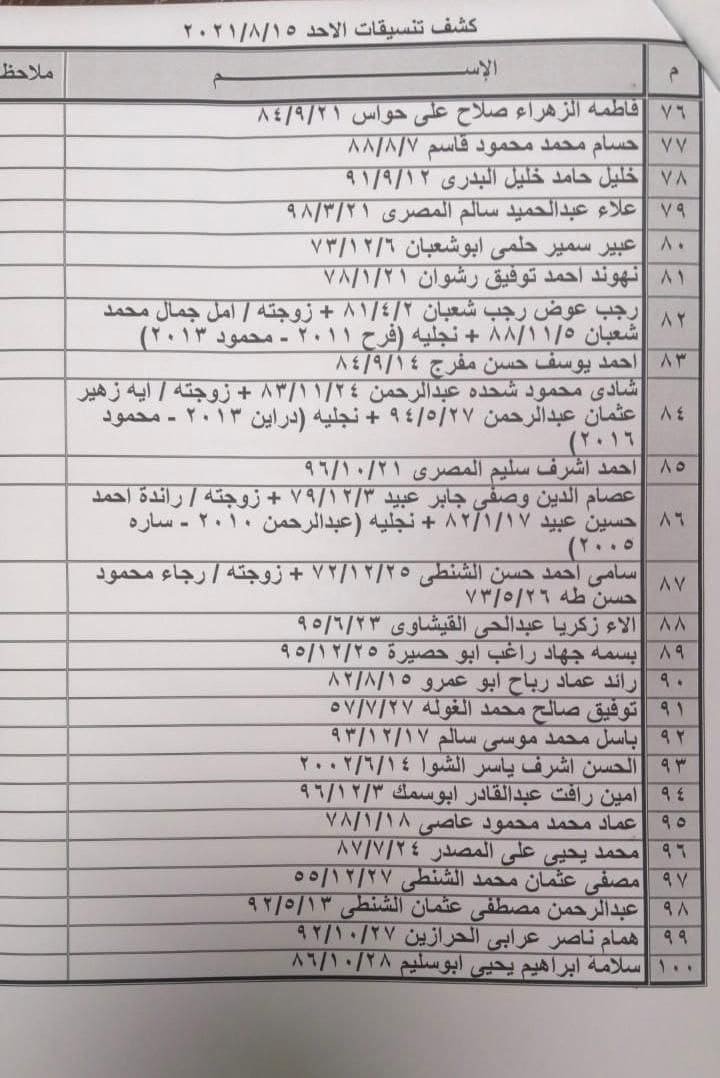 كشف تنسيقات الاحد ٢٠٢١/٨/١٥
م الإســـــــــــم ملاحظ
٧٦ فاطمه الزهراء صلاح على حواس ٨٤/٩/٢١
٧٧ حسام محمد محمود قاسم ٨٨/٨/٧
٧٨ خليل حامد خليل البدرى ٩١/٩/١٢
٧٩ علاء عبدالحميد سالم المصرى ٩٨/٣/٢١
٨٠ عبير سمير حلمى ابوشعبان ٧٣/١٢/٦
٨١ نهوند احمد توفيق رشوان ٧٨/١/٢١
٨٢ رجب عوض رجب شعبان ٨١/٤/٢ + زوجته / امل جمال محمد
شعبان ٨٨/١١/٥ + نجليه (فرح ٢٠١١ - محمود ٢٠١٣)
٨٣ احمد يوسف حسن مفرج ٨٤/٩/١٤
٨٤ شادى محمود شحده عبدالرحمن ٨٣/١١/٢٤ + زوجته / ايه زهير
عثمان عبدالرحمن ٩٤/٥/٢٧ + نجليه (دراين ٢٠١٣ - محمود
٢٠١٦)
٨٥ احمد اشرف سليم المصرى ٩٦/١٠/٢١
٨٦ عصام الدين وصفى جابر عبيد ٧٩/١٢/٣ + زوجته / راندة احمد
حسين عبيد ٨٢/١/١٧ + نجليه (عبدالرحمن ٢٠١٠ - ساره
٢٠٠٥)
٨٧ سامى احمد حسن الشنطى ٧٢/١٢/٢٥ + زوجته / رجاء محمود
حسن طه ٧٣/٥/٢٦
٨٨ الاء زكريا عبدالحى القيشاوى ٩٥/٦/٢٣
٨٩ بسمه جهاد راغب ابو حصيرة ٩٥/١٢/٢٥
٩٠ رائد عماد رباح ابو عمرو ٨٢/٨/١٥
٩١ توفيق صالح محمد الغوله ٥٧/٧/٢٧
٩٢ باسل محمد موسى سالم ٩٣/١٢/١٧
٩٣ الحسن اشرف ياسر الشوا ٢٠٠٢/٦/١٤
٩٤ امين رافت عبدالقادر ابوسمك ٩٦/١٢/٣
٩٥ عماد محمد محمود عاصى ٧٨/١/١٨
٩٦ محمد يحيى على المصدر ٨٧/٧/٢٤
٩٧ مصفى عثمان محمد الشنطى ٥٥/١٢/٢٧
٩٨ عبدالرحمن مصطفى عثمان الشنطى ٩٢/٥/١٣
٩٩ همام ناصر عرابى الحرازين ٩٢/١٠/٢٧
١٠٠ سلامة ابراهيم يحيى ابوسليم ٨٦/١٠/٢٨